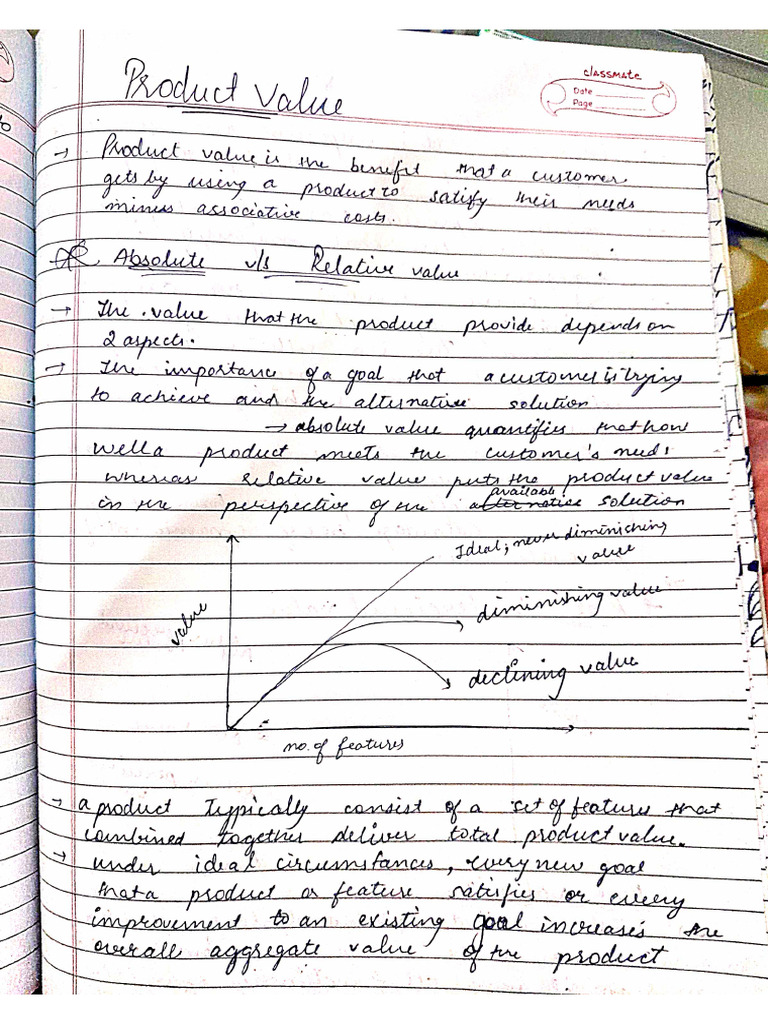 classmate
Date
Page
Product Value
→ Product value is the benefit that a customer
gets by using a product to satisfy their needs
minus associative costs.
Absolute v/s Relative value
→ The value that the product provide depends on
2 aspects.
→ The importance of a goal that a customer is trying
to achieve and the alternative solution
→ absolute value quantifies that how
well a product meets the customer's needs
whereas relative value puts the product value
available
in the perspective of the alternative solution
Ideal, never diminishing
value
diminishing value
value
declining value
no. of features
→ a product typically consist of a set of features that
combined together deliver total product value.
→ under ideal circumstances, every new goal
that a product or feature satisfies or every
improvement to an existing goal increases the
overall aggregate value of the product